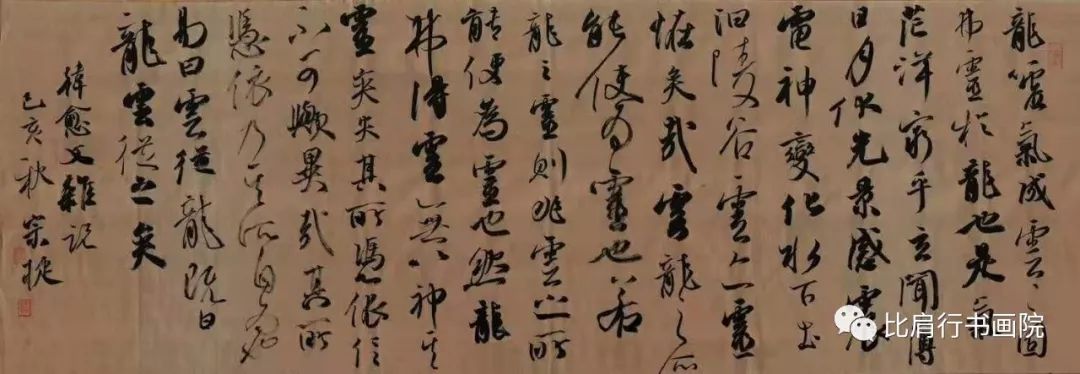 龍噓氣成雲〻固
弗靈於龍也是氣
茫洋窮乎玄間薄
日月伏光景感震
電神變化水下土
汩陵谷雲亦靈
怪矣哉雲龍之所
能使為靈也若
龍之靈則非雲之所
能使為靈也然龍
弗得雲無以神其
靈矣失其所憑依信
不可歟異哉其所
憑依乃其所自為
易曰雲從龍既曰
龍雲從之矣
韓愈文雜說
己亥秋
比肩行书画院